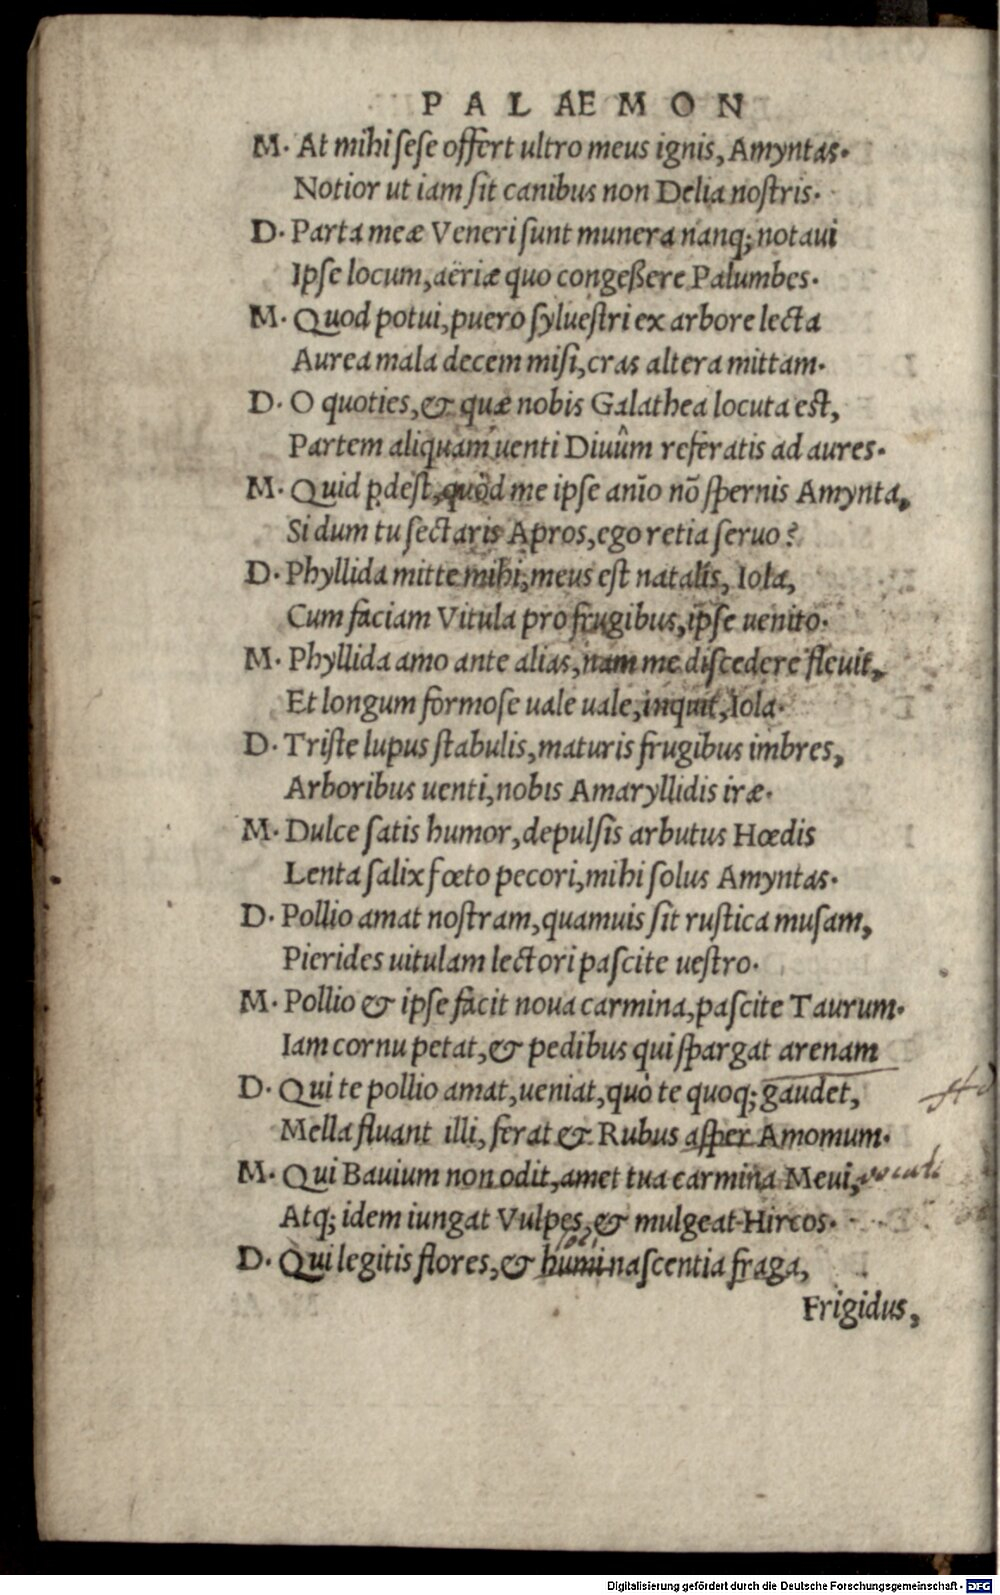 PALAEMON
M. At mihi sese offert ultro meus ignis, Amyntas.
Notior ut iam sit canibus non Delia nostris.
D. Parta meæ Veneri sunt munera nanq; notaui
Ipse locum, aëriæ quo congeßere Palumbes.
M. Quod potui, puero syluestri ex arbore lecta
Aurea mala decem misi, cras altera mittam.
D. O quoties, & quæ nobis Galathea locuta est,
Partem aliquam uenti Diuûm referatis ad aures.
M. Quid pdest, quòd me ipse anīo nō spernis Amynta,
Si dum tu sectaris Apros, ego retia seruo?
D. Phyllida mitte mihi, meus est natalis, Iola,
Cum faciam Vitula pro frugibus, ipse uenito.
M. Phyllida amo ante alias, nam me discedere fleuit,
Et longum formose uale uale, inquit, Iola.
D. Triste lupus stabulis, maturis frugibus imbres,
Arboribus uenti, nobis Amaryllidis iræ.
M. Dulce satis humor, depulsis arbutus Hœdis
Lenta salix fœto pecori, mihi solus Amyntas.
D. Pollio amat nostram, quamuis sit rustica musam,
Pierides uitulam lectori pascite uestro.
M. Pollio & ipse facit noua carmina, pascite Taurum.
Iam cornu petat, & pedibus qui spargat arenam
D. Qui te pollio amat, ueniat, quò te quoq; gaudet,
Mella fluant illi, ferat & Rubus asper Amomum.
M. Qui Bauium non odit, amet tua carmina Meui,
Atq; idem iungat Vulpes, & mulgeat Hircos.
D. Qui legitis flores, & humi nascentia fraga,
Frigidus,
Digitalisierung gefördert durch die Deutsche Forschungsgemeinschaft - DFG